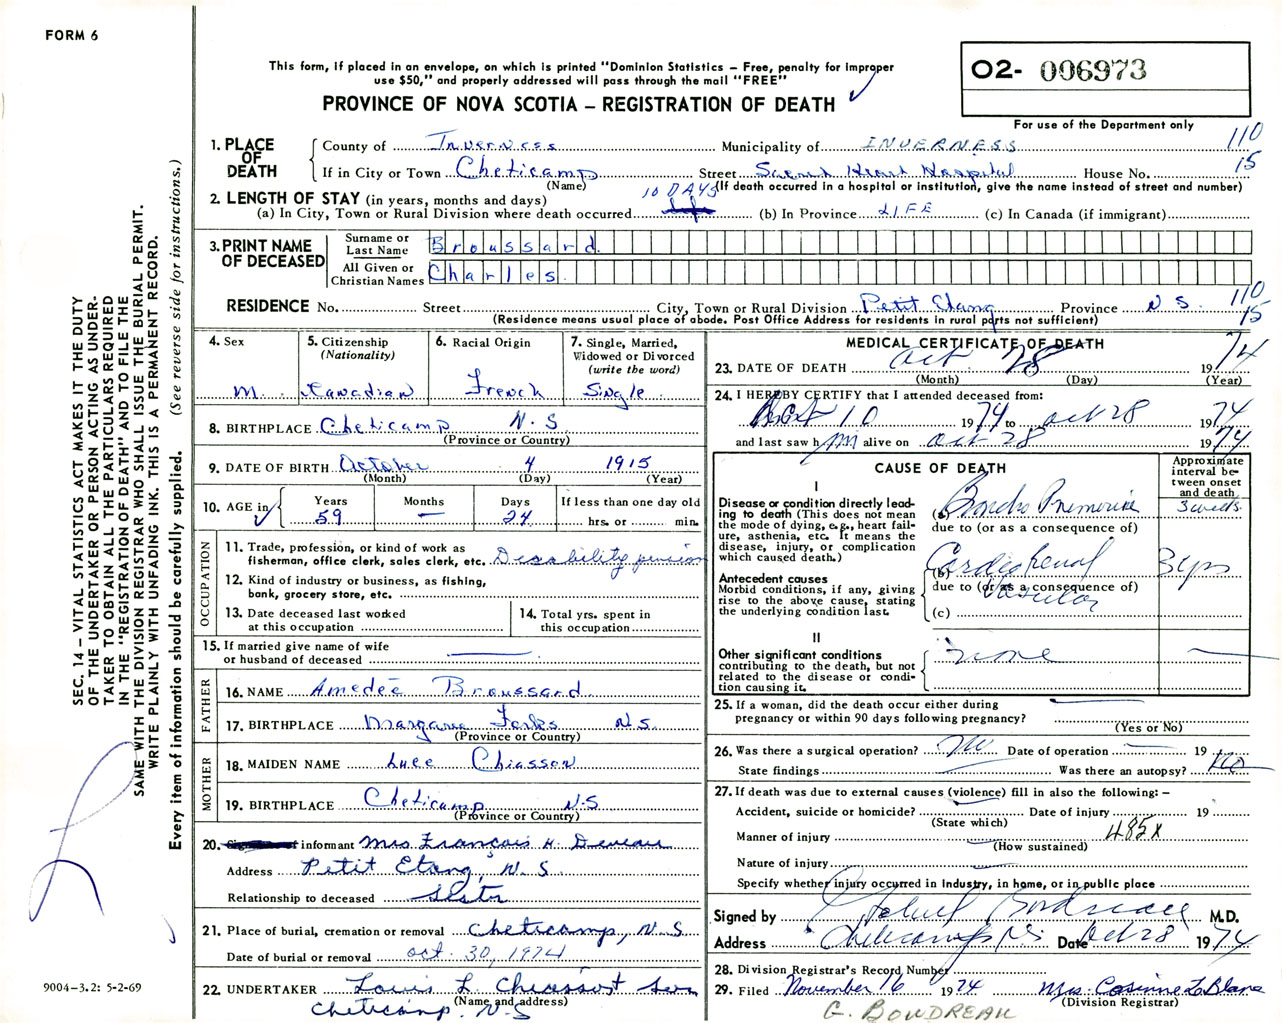 FORM 6
This form, if placed in an envelope, on which is printed "Dominion Statistics – Free, penalty for improper
use $50," and properly addressed will pass through the mail "FREE"
PROVINCE OF NOVA SCOTIA – REGISTRATION OF DEATH
02- 006973
For use of the Department only
110
15
1. PLACE OF DEATH
County of Inverness Municipality of INVERNESS
If in City or Town Cheticamp Street Sacred Heart Hospital House No.
(Name) (If death occurred in a hospital or institution, give the name instead of street and number)
2. LENGTH OF STAY (in years, months and days)
10 DAYS
(a) In City, Town or Rural Division where death occurred (b) In Province LIFE (c) In Canada (if immigrant)
3. PRINT NAME OF DECEASED
Surname or Last Name Broussard
All Given or Christian Names Charles
RESIDENCE No. Street City, Town or Rural Division Petit Etang Province N S
110
15
(Residence means usual place of abode. Post Office Address for residents in rural parts not sufficient)
4. Sex M.
5. Citizenship (Nationality) Canadian
6. Racial Origin French
7. Single, Married, Widowed or Divorced (write the word) Single
8. BIRTHPLACE Cheticamp N.S
(Province or Country)
9. DATE OF BIRTH October 4 1915
(Month) (Day) (Year)
10. AGE in Years 59 Months — Days 24 If less than one day old hrs. or min.
OCCUPATION
11. Trade, profession, or kind of work as
fisherman, office clerk, sales clerk, etc. Disability pension
12. Kind of industry or business, as fishing,
bank, grocery store, etc.
13. Date deceased last worked
at this occupation
14. Total yrs. spent in
this occupation
15. If married give name of wife
or husband of deceased —
FATHER
16. NAME Amedée Broussard
17. BIRTHPLACE Margaree Forks N.S.
(Province or Country)
MOTHER
18. MAIDEN NAME Luce Chiasson
19. BIRTHPLACE Cheticamp N.S
(Province or Country)
20. informant Mrs François H. Deveau
Address Petit Etang, N.S.
Relationship to deceased Sister
21. Place of burial, cremation or removal Cheticamp, N.S
Date of burial or removal oct. 30, 1974
22. UNDERTAKER Louis L. Chiasson & Son
(Name and address)
Cheticamp. N-S
MEDICAL CERTIFICATE OF DEATH
23. DATE OF DEATH Oct 28 1974
(Month) (Day) (Year)
24. I HEREBY CERTIFY that I attended deceased from:
Oct 10 1974 to oct 28 1974
and last saw him alive on oct 28 1974
CAUSE OF DEATH
Approximate interval between onset and death
I
Disease or condition directly leading to death (This does not mean the mode of dying, e.g., heart failure, asthenia, etc. It means the disease, injury, or complication which caused death.)
(a) Broncho Pneumonia 3 weeks
due to (or as a consequence of)
Antecedent causes
Morbid conditions, if any, giving rise to the above cause, stating the underlying condition last.
(b) Cardio Renal Vascular 3 yrs
due to (or as a consequence of)
(c)
II
Other significant conditions
contributing to the death, but not related to the disease or condition causing it.
none —
25. If a woman, did the death occur either during
pregnancy or within 90 days following pregnancy? —
(Yes or No)
26. Was there a surgical operation? no Date of operation — 19
State findings — Was there an autopsy? no
27. If death was due to external causes (violence) fill in also the following: –
Accident, suicide or homicide? Date of injury 19
(State which)
Manner of injury 485X
(How sustained)
Nature of injury
Specify whether injury occurred in industry, in home, or in public place
Signed by Boudreau M.D.
Address Cheticamp NS Date Oct 28 1974
28. Division Registrar's Record Number
29. Filed November 16 1974 Mrs. Corinne LeBlanc
(Division Registrar)
G. BOUDREAU
SEC. 14 – VITAL STATISTICS ACT MAKES IT THE DUTY
OF THE UNDERTAKER OR PERSON ACTING AS UNDER-
TAKER TO OBTAIN ALL THE PARTICULARS REQUIRED
IN THE "REGISTRATION OF DEATH" AND TO FILE THE
SAME WITH THE DIVISION REGISTRAR WHO SHALL ISSUE THE BURIAL PERMIT.
WRITE PLAINLY WITH UNFADING INK. THIS IS A PERMANENT RECORD.
Every item of information should be carefully supplied. (See reverse side for instructions.)
9004–3.2: 5-2-69